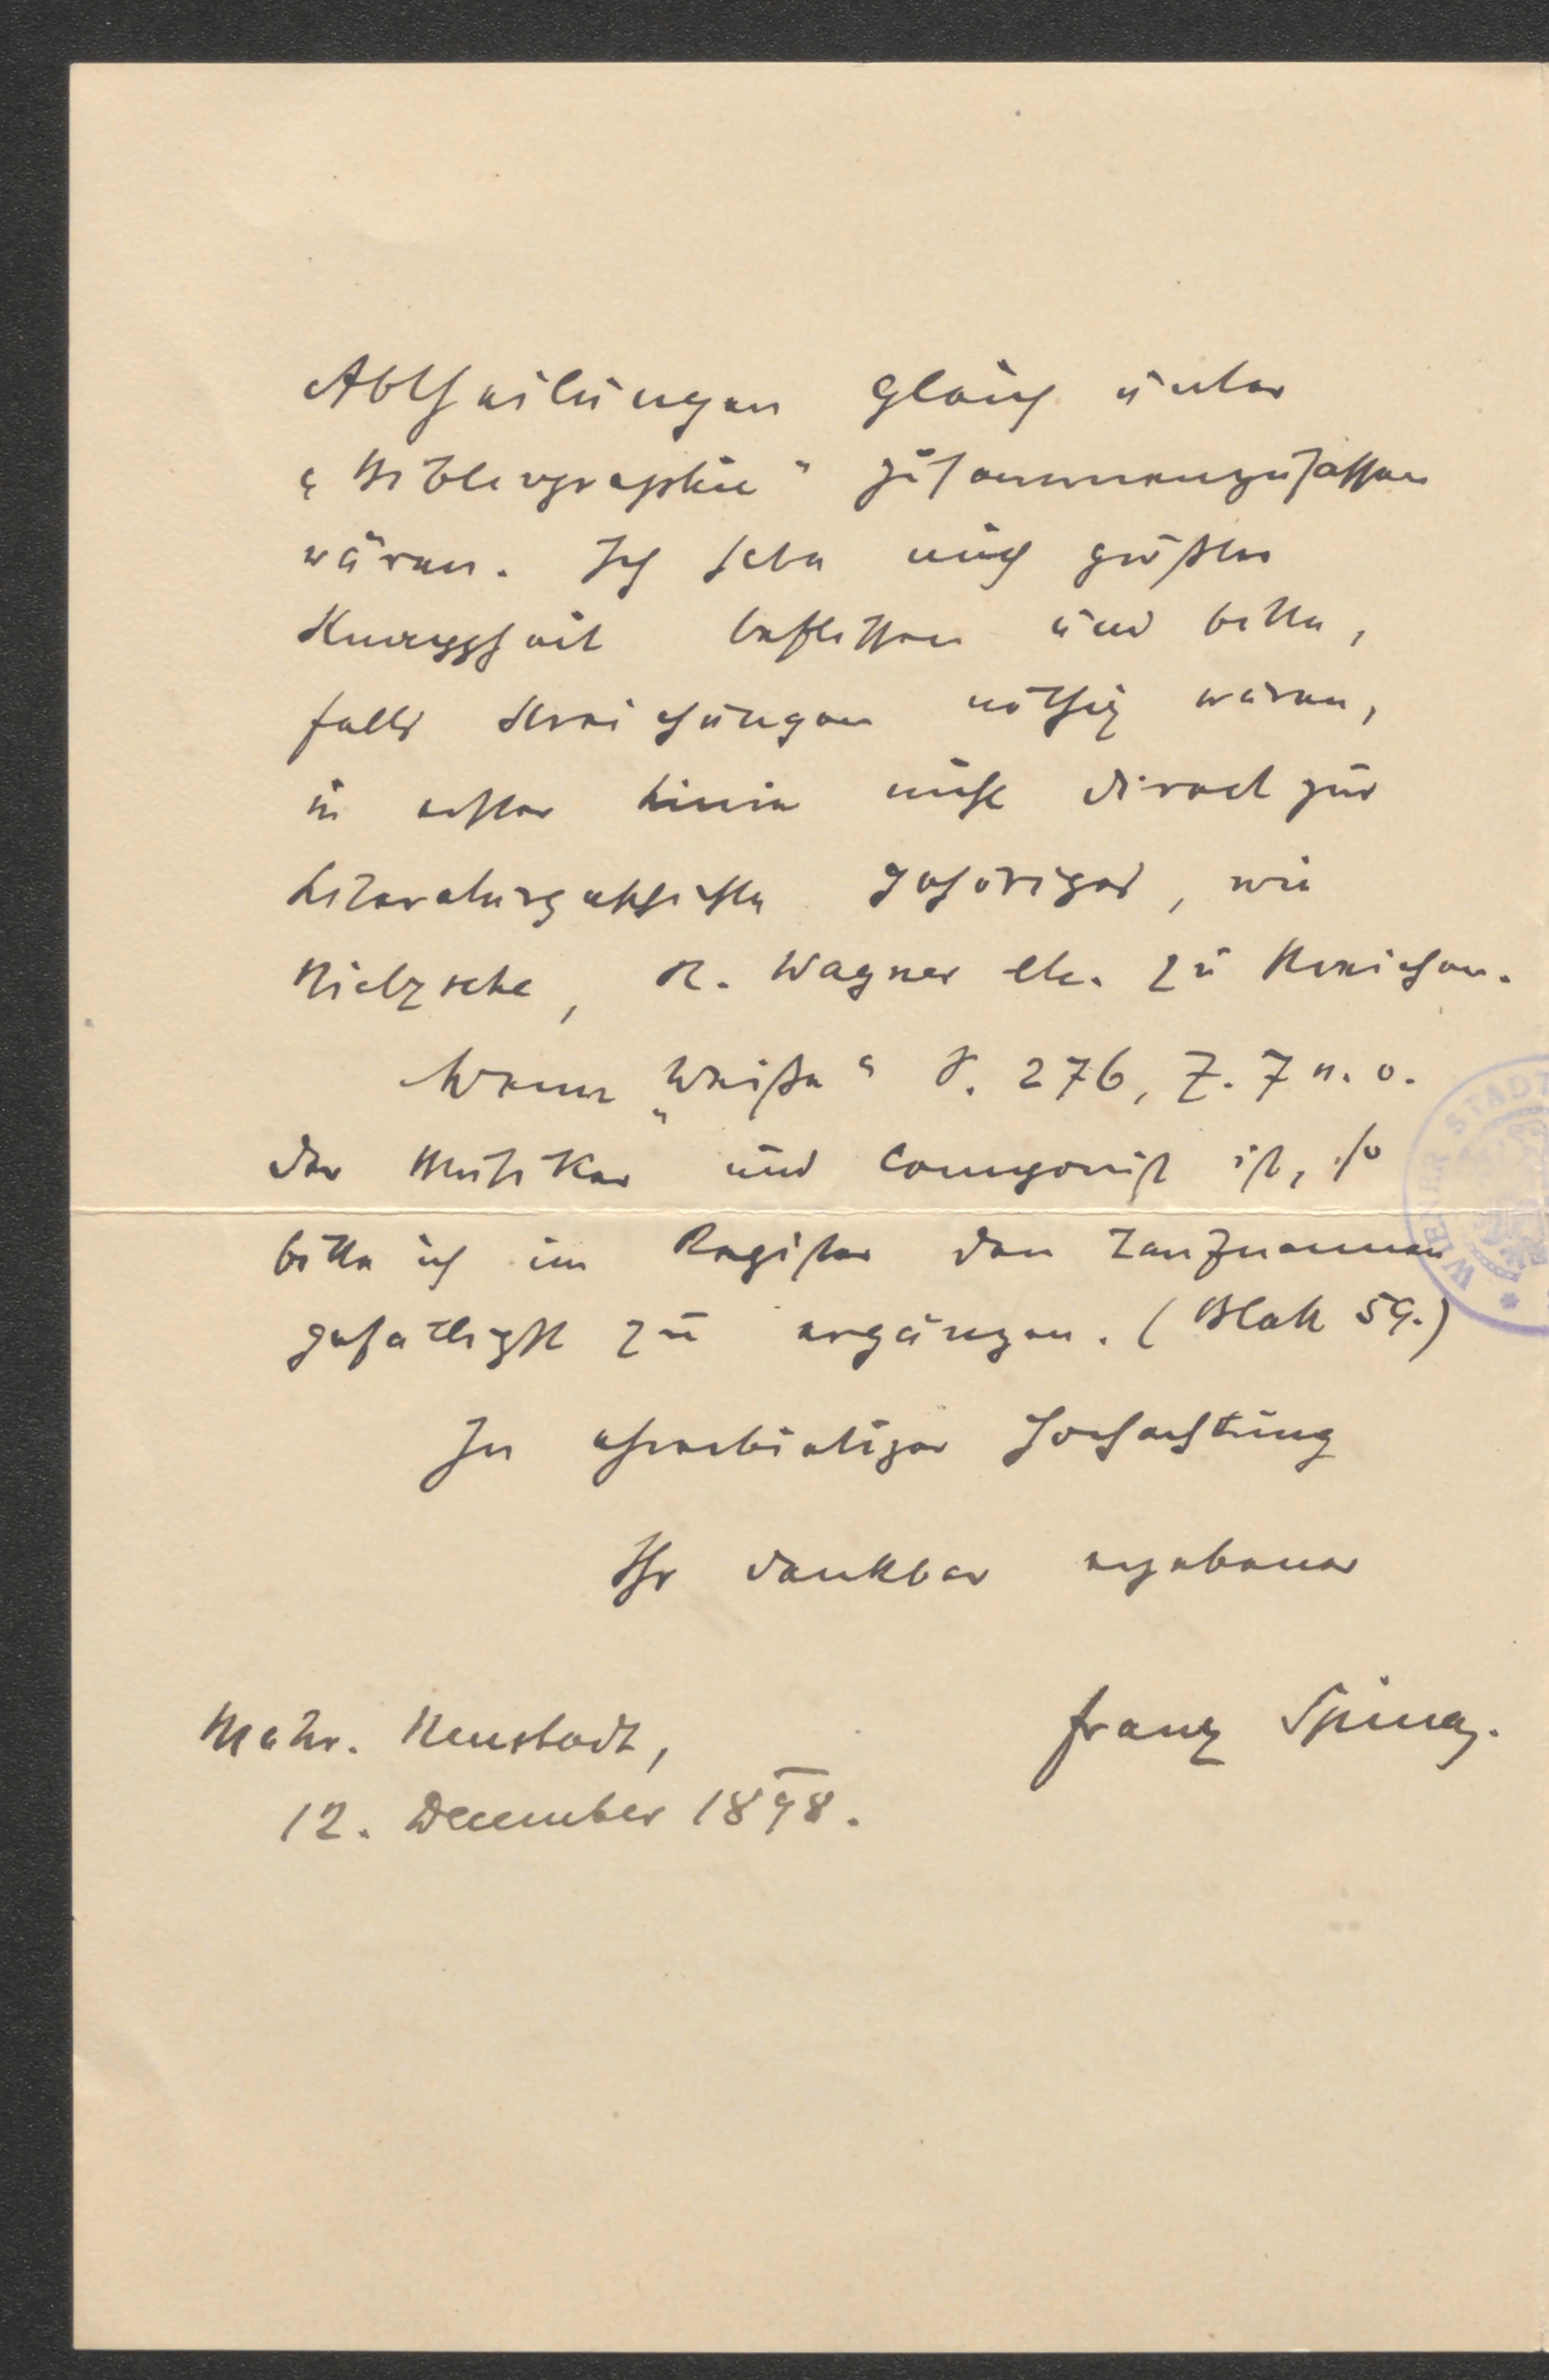 Abtheilungen gleich unter
„Bibliographie" zusammenzufassen
wären. Ich habe mich größter
Knappheit beflissen und bitte,
falls Streichungen nöthig wären,
in erster Linie nicht direct zur
Literaturgeschichte gehöriges, wie
Nietzsche, R. Wagner etc. zu streichen.
Wenn „Weiße" S. 276, Z. 7 v. o.
der Musiker und Componist ist, so
bitte ich im Register den Taufnamen
gefälligst zu ergänzen. (Blatt 59.)
In ehrerbietiger Hochachtung
Ihr dankbar ergebener
Franz Spina.
Mähr. Neustadt,
12. December 1898.
WIENER STADT